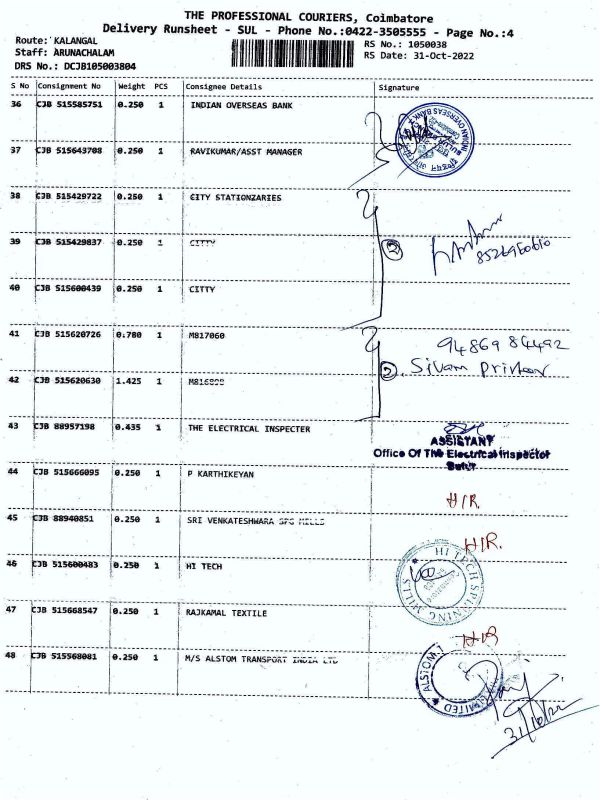 THE PROFESSIONAL COURIERS, Coimbatore
Delivery Runsheet - SUL - Phone No.:0422-3505555 - Page No.:4
Route: KALANGAL
RS No.: 1050038
Staff: ARUNACHALAM
RS Date: 31-Oct-2022
DRS No.: DCJB105003804
S No Consignment No Weight PCS Consignee Details Signature
36 CJB 515585751 0.250 1 INDIAN OVERSEAS BANK
37 CJB 515643708 0.250 1 RAVIKUMAR/ASST MANAGER
38 CJB 515429722 0.250 1 CITY STATIONZARIES
39 CJB 515429837 0.250 1 CITTY
8526960610
40 CJB 515600439 0.250 1 CITTY
41 CJB 515620726 0.780 1 M817060
94869 84492
42 CJB 515620630 1.425 1
2. Sivam Printer
43 CJB 88957198 0.435 1 THE ELECTRICAL INSPECTER
ASSISTANT
Office Of The Electrical Inspector
Sulur
44 CJB 515666095 0.250 1 P KARTHIKEYAN
H/R.
45 CJB 88940851 0.250 1 SRI VENKATESHWARA SPG MILLS
H/R.
46 CJB 515600483 0.250 1 HI TECH
HI TECH SPINNING MILLS
47 CJB 515668547 0.250 1 RAJKAMAL TEXTILE
H/R
48 CJB 515568081 0.250 1 M/S ALSTOM TRANSPORT INDIA LTD
31/10/22